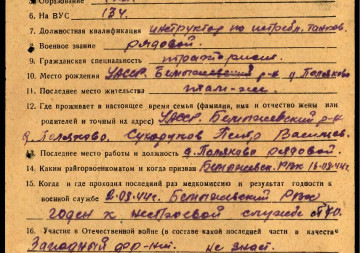 6. На ВУС 134
7. Должностная квалификация инструктор по истребл. танков.
8. Военное звание рядовой.
9. Гражданская специальность тракторист
10. Место рождения УАССР, Бемыжевский р-н д. Поляково
11. Последнее место жительства там-же
12. Где проживает в настоящее время семья (фамилия, имя и отчество жены или
родителей и точный их адрес) УАССР, Бемыжевский р-н
д. Поляково, Петр
13. Последнее место работы и должность д. Поляково рядовой.
14. Каким райгорвоенкоматом и когда призван Бемыжевск. РВК
15. Когда и где проходил последний раз медкомиссию и результат годности к
военной службе Бемыжевский РВК
годен к службе
16. Участие в Отечественной войне (в составе какой последней части в качестве
Западный фр-нт. не знает.